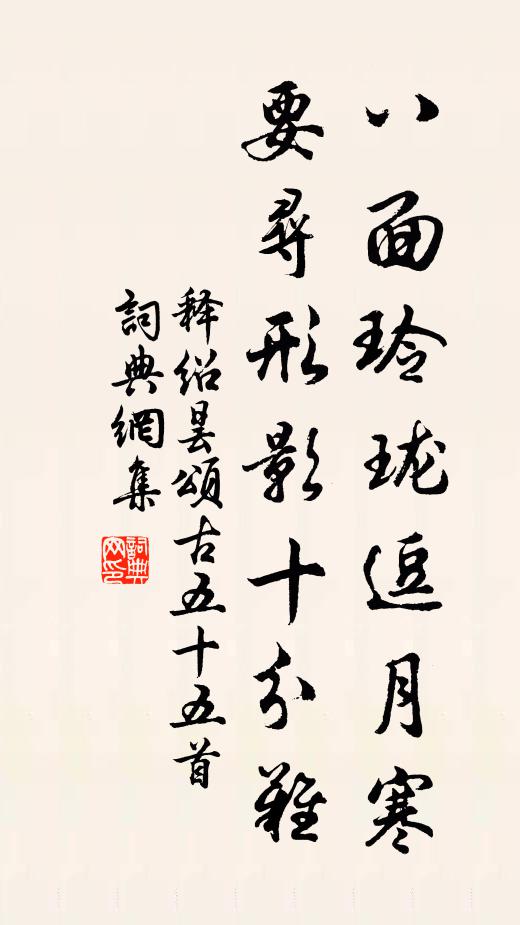 八面玲珑逗月寒
要尋形影十分難
释绍昙頌古五十五首
詞典網集
詞典
网印